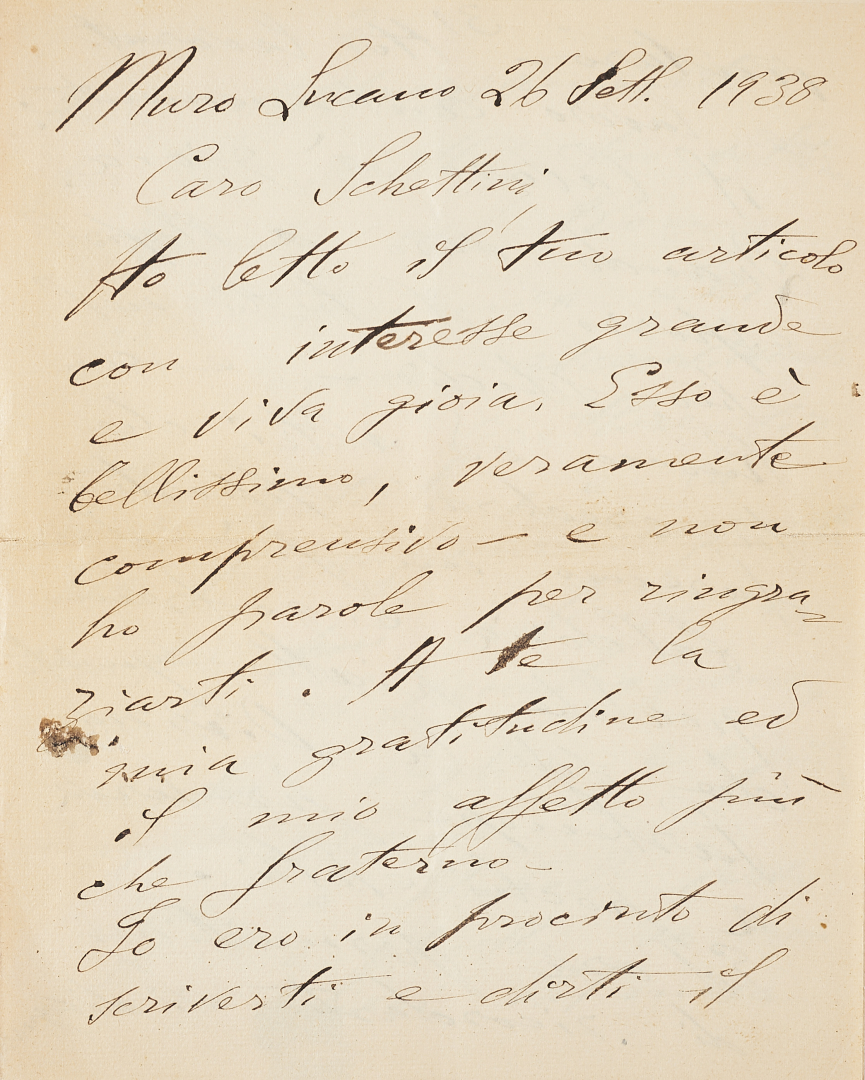 Muro Lucano 26 Sett. 1938
Caro Schettini,
Ho letto il tuo articolo
con interesse grande
e viva gioia. Esso è
bellissimo, veramente
comprensivo – e non
ho parole per ringra-
ziarti. A te la
mia gratitudine ed
il mio affetto più
che fraterno –
Io ero in procinto di
scriverti e dirti il